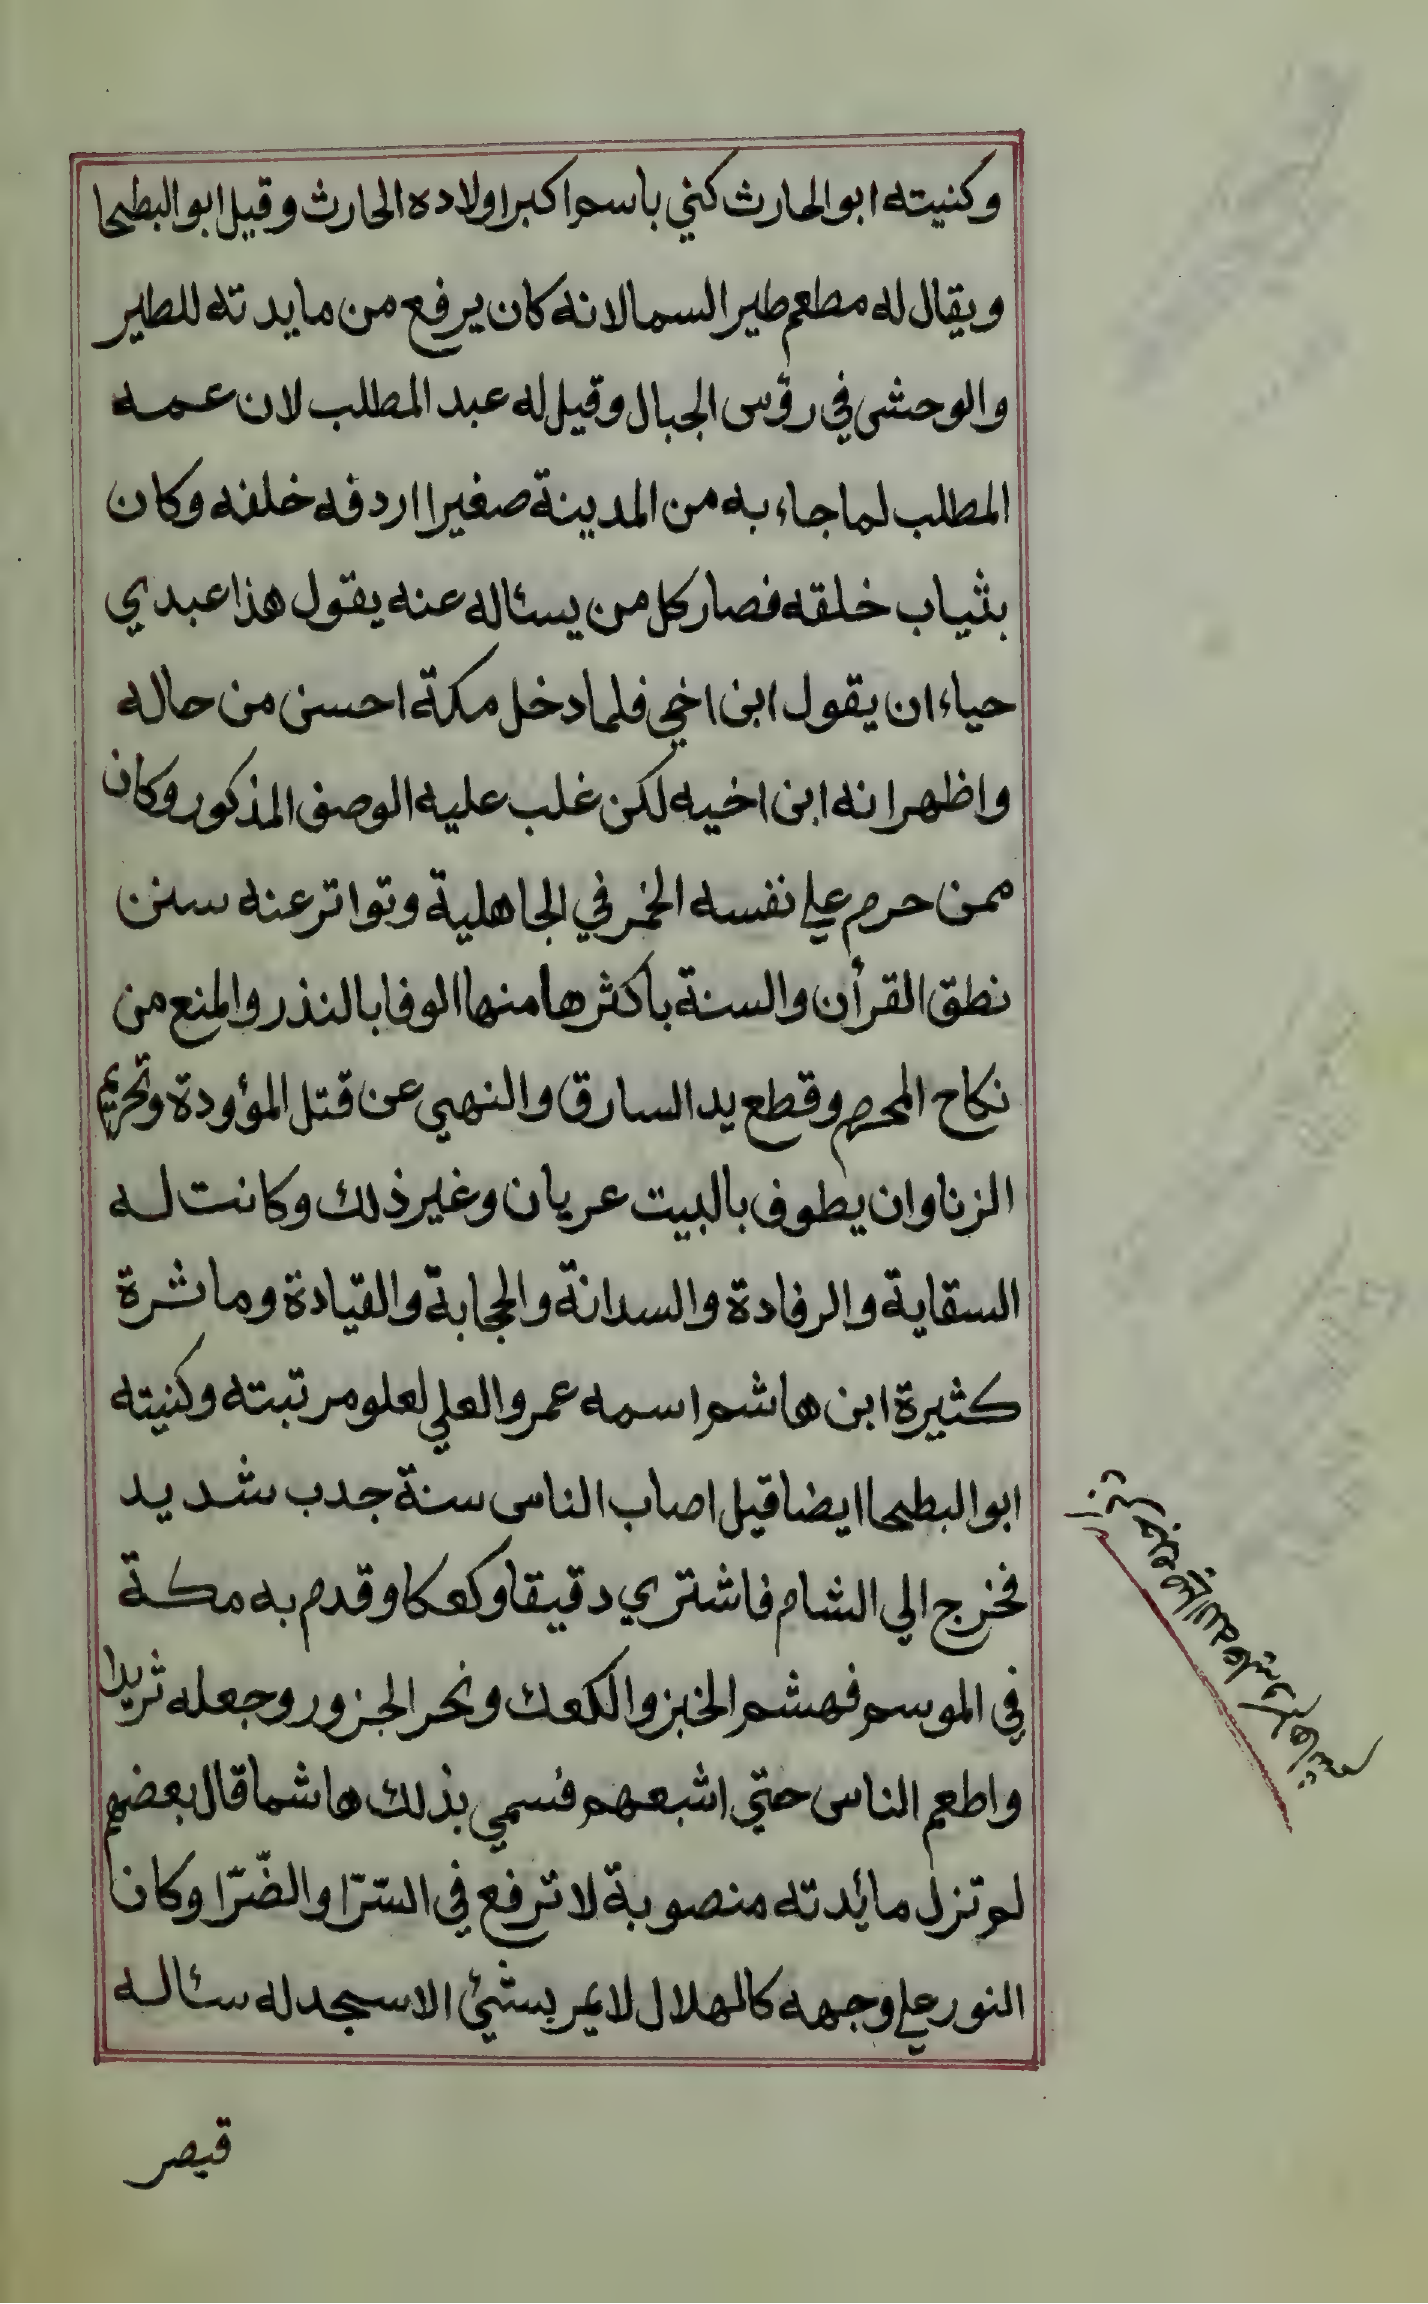 وكنيته ابو الحارث كني باسم اكبر اولاده الحارث وقيل ابو البطحا
ويقال له مطعم طير السما لانه كان يرفع من مايدته للطير
والوحش في رؤس الجبال وقيل له عبد المطلب لان عمه
المطلب لما جاء به من المدينة صغيرا اردفه خلفه وكان
بثياب خلقه فصار كل من يسئاله عنه يقول هذا عبدي
حياء ان يقول ابن اخي فلما دخل مكة احسن من حاله
واظهر انه ابن اخيه لكن غلب عليه الوصف المذكور وكان
ممن حرم علي نفسه الخمر في الجاهلية وتواتر عنه سنن
نطق القرأن والسنة بأكثرها منها الوفا بالنذر والمنع من
نكاح المحرم وقطع يد السارق والنهي عن قتل المؤودة وتحريم
الزنا وان يطوف بالبيت عريان وغير ذلك وكانت له
السقاية والرفادة والسدانة والحجابة والقيادة وماثرة
كثيرة ابن هاشم اسمه عمرو العلي لعلو مرتبته وكنيته
ابو البطحا ايضا قيل اصاب الناس سنة جدب شديد
فخرج الي الشام فاشتري دقيقا وكعكا وقدم به مكة
في الموسم فهشم الخبز والكعك ونحر الجزور وجعله ثريدا
واطعم الناس حتي اشبعهم فسمي بذلك هاشما قال بعضهم
لم تزل مائدته منصوبة لا ترفع في السّرّا والضّرّا وكان
النور علي وجهه كالهلال لا يمر بشئ الا سجد له سئاله
قيصر